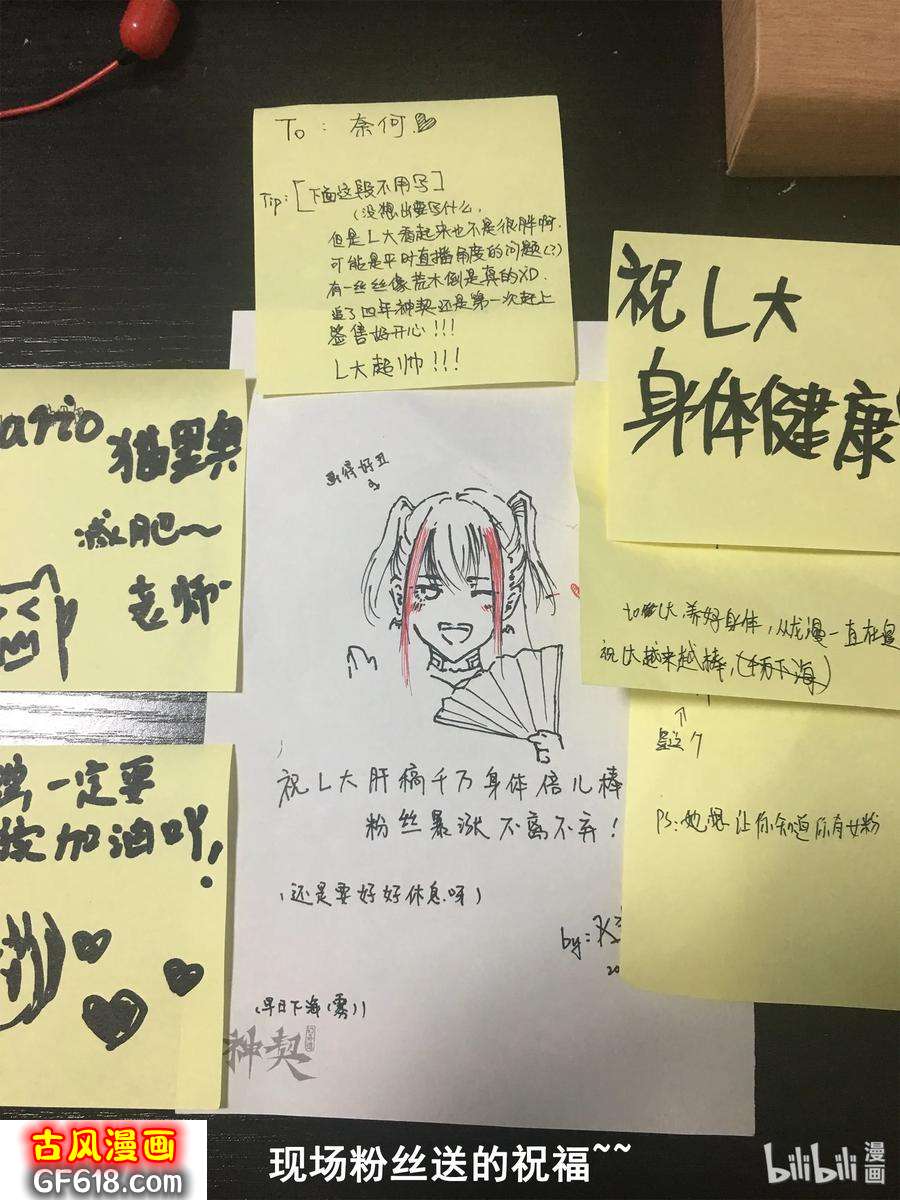 To: 奈何
Tip: [下面这段不用写]
(没想出要写什么,
但是L大看起来也不是很胖啊.
可能是平时直播角度的问题(?)
有一丝丝像荒木倒是真的XD.
追了四年神契还是第一次赶上
签售好开心!!!
L大超帅!!!
祝L大
身体健康
ario
猫里奥
减肥~
老师
画得好丑
to L大 养好身体,从龙漫一直在追
祝L大越来越棒,(千万下海)
PS: 她想让你知道你有女粉
一定要
加油吖!
祝L大肝稿千万身体倍儿棒
粉丝暴涨 不离不弃!
(还是要好好休息呀)
by:
20
(早日下海(雾))
神契
古风漫画
GF618.com
现场粉丝送的祝福~~
bilibili 漫画